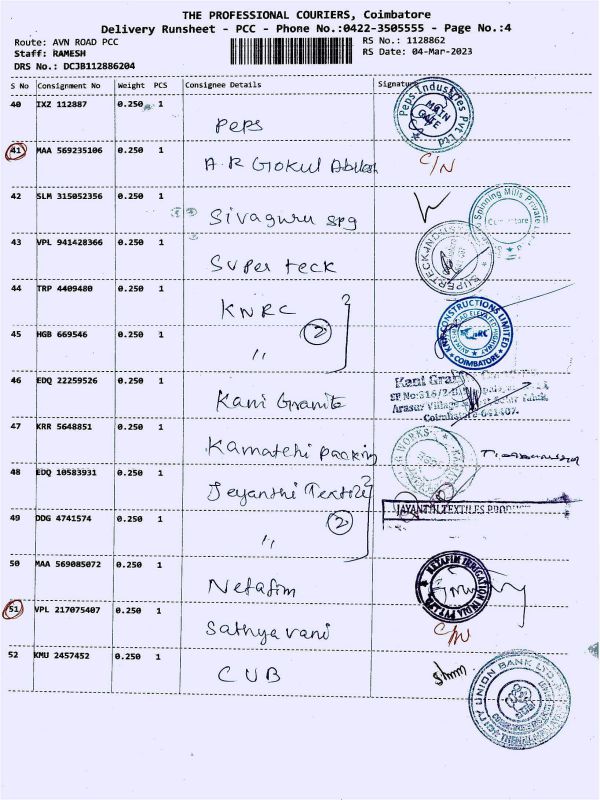 THE PROFESSIONAL COURIERS, Coimbatore
Delivery Runsheet - PCC - Phone No.:0422-3505555 - Page No.:4
Route: AVN ROAD PCC
RS No.: 1128862
Staff: RAMESH
RS Date: 04-Mar-2023
DRS No.: DCJB112886204
S No Consignment No Weight PCS Consignee Details Signature
40 IXZ 112887 0.250 1
Peps
Peps Industries Pvt Ltd
MAIN GATE
41 MAA 569235106 0.250 1
A.R Gokul
C/N
42 SLM 315052356 0.250 1
Sivaguru spg
Spinning Mills Private
43 VPL 941428366 0.250 1
Super teck
SUPERTECK
44 TRP 4409480 0.250 1
KNRC
2
KNR CONSTRUCTIONS LIMITED
COIMBATORE
45 HGB 669546 0.250 1
〃
46 EDQ 22259526 0.250 1
Kani Granite
Kani
Arasur Village
Coimbatore 641407.
47 KRR 5648851 0.250 1
Kamatchi packing
WORKS
48 EDQ 10583931 0.250 1
Jeyanthi Textile
2
49 DDG 4741574 0.250 1
〃
JAYANTHI TEXTILES
50 MAA 569085072 0.250 1
Netafim
NETAFIM IRRIGATION INDIA PVT LTD
51 VPL 217075407 0.250 1
Sathyavani
C/N
52 KMU 2457452 0.250 1
CUB
CITY UNION BANK LTD